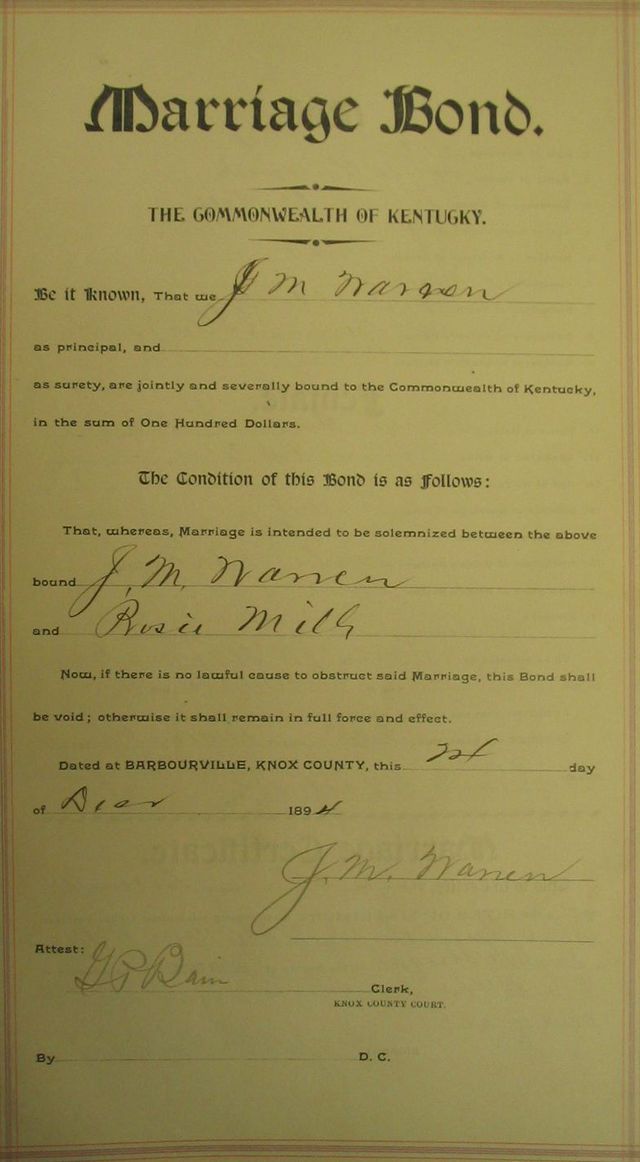 Marriage Bond.
THE COMMONWEALTH OF KENTUCKY.
Be it Known, That we J M Warren
as principal, and
as surety, are jointly and severally bound to the Commonwealth of Kentucky,
in the sum of One Hundred Dollars.
The Condition of this Bond is as Follows:
That, whereas, Marriage is intended to be solemnized between the above
bound J. M. Warren
and Rosie Mills
Now, if there is no lawful cause to obstruct said Marriage, this Bond shall
be void; otherwise it shall remain in full force and effect.
Dated at BARBOURVILLE, KNOX COUNTY, this day
of 1894
J. M. Warren
Attest:
G P Bain Clerk,
KNOX COUNTY COURT.
By D. C.